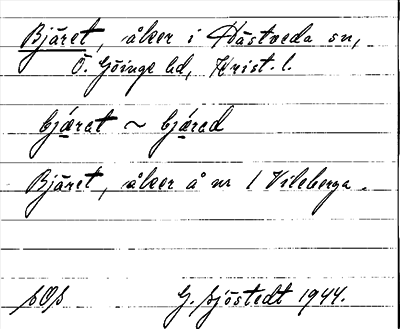 Bjäret, åker i Hästveda sn,
Ö. Göinge hd, Krist. l.
bjærat ~ bjærad
Bjäret, åker å nr 1 Vileberga.
SOS
G. Sjöstedt 1944.